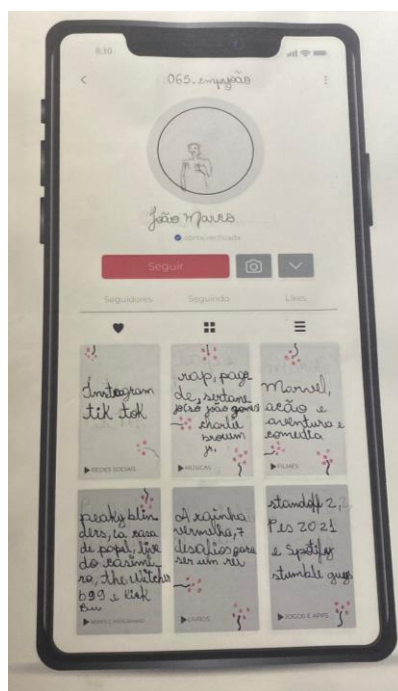 9:30
065_empjoão
João Marcos
conta verificada
Seguir
Seguidores Seguindo Likes
Instagram
tik tok
REDES SOCIAIS
rap, pago
de, sertane
jo(só joão gomes
charlie
brown
jr.
MÚSICAS
Marvel,
acão e
aventura e
comedia
FILMES
peaky blin
ders, la casa
de papel, live
do casimi
ro, the witcher
b99 e Kick
SÉRIES E PROGRAMAS
A rainha
vermelha, 7
desafios para
ser um rei
LIVROS
standoff 2,
Pes 2021
e Spotify
stumble guys
JOGOS E APPS